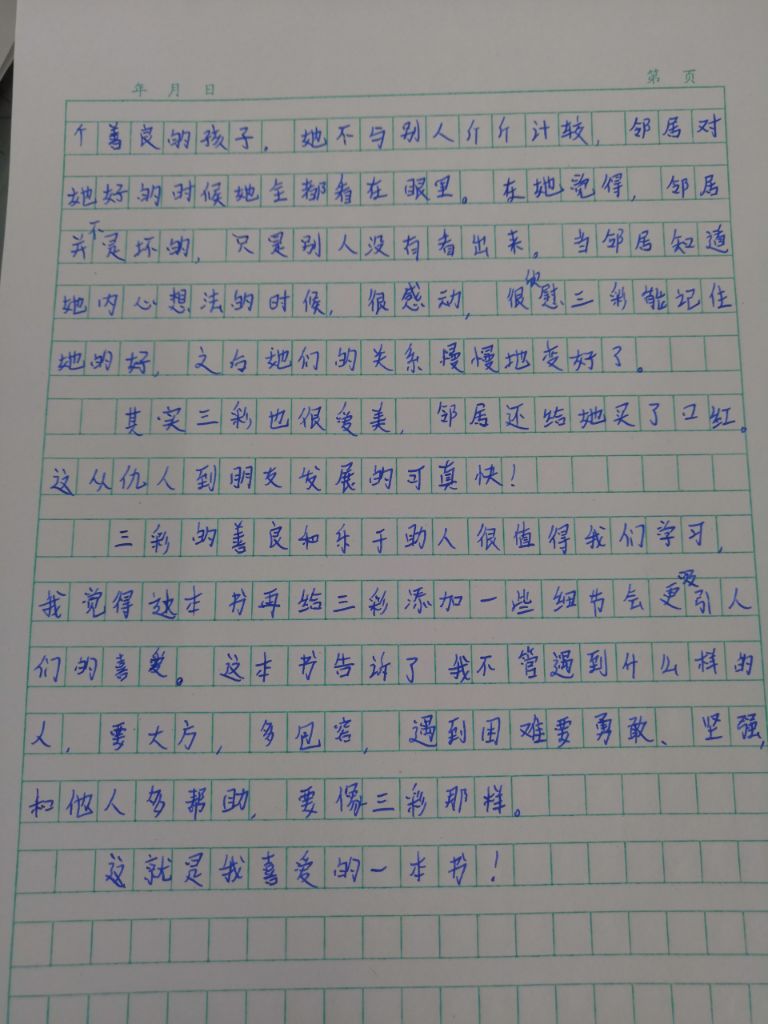 年 月 日
第 页
个善良的孩子，她不与别人斤斤计较，邻居对
她好的时候她全都看在眼里。在她觉得，邻居
并不是坏的，只是别人没有看出来。当邻居知道
她内心想法的时候，很感动，很欣慰三彩能记住
她的好，之后她们的关系慢慢地变好了。
其实三彩也很爱美，邻居还给她买了口红。
这从仇人到朋友发展的可真快！
三彩的善良和乐于助人很值得我们学习，
我觉得这本书再给三彩添加一些细节会更吸引人
们的喜爱。这本书告诉了我不管遇到什么样的
人，要大方，多包容，遇到困难要勇敢、坚强，
和他人多帮助，要像三彩那样。
这就是我喜爱的一本书！